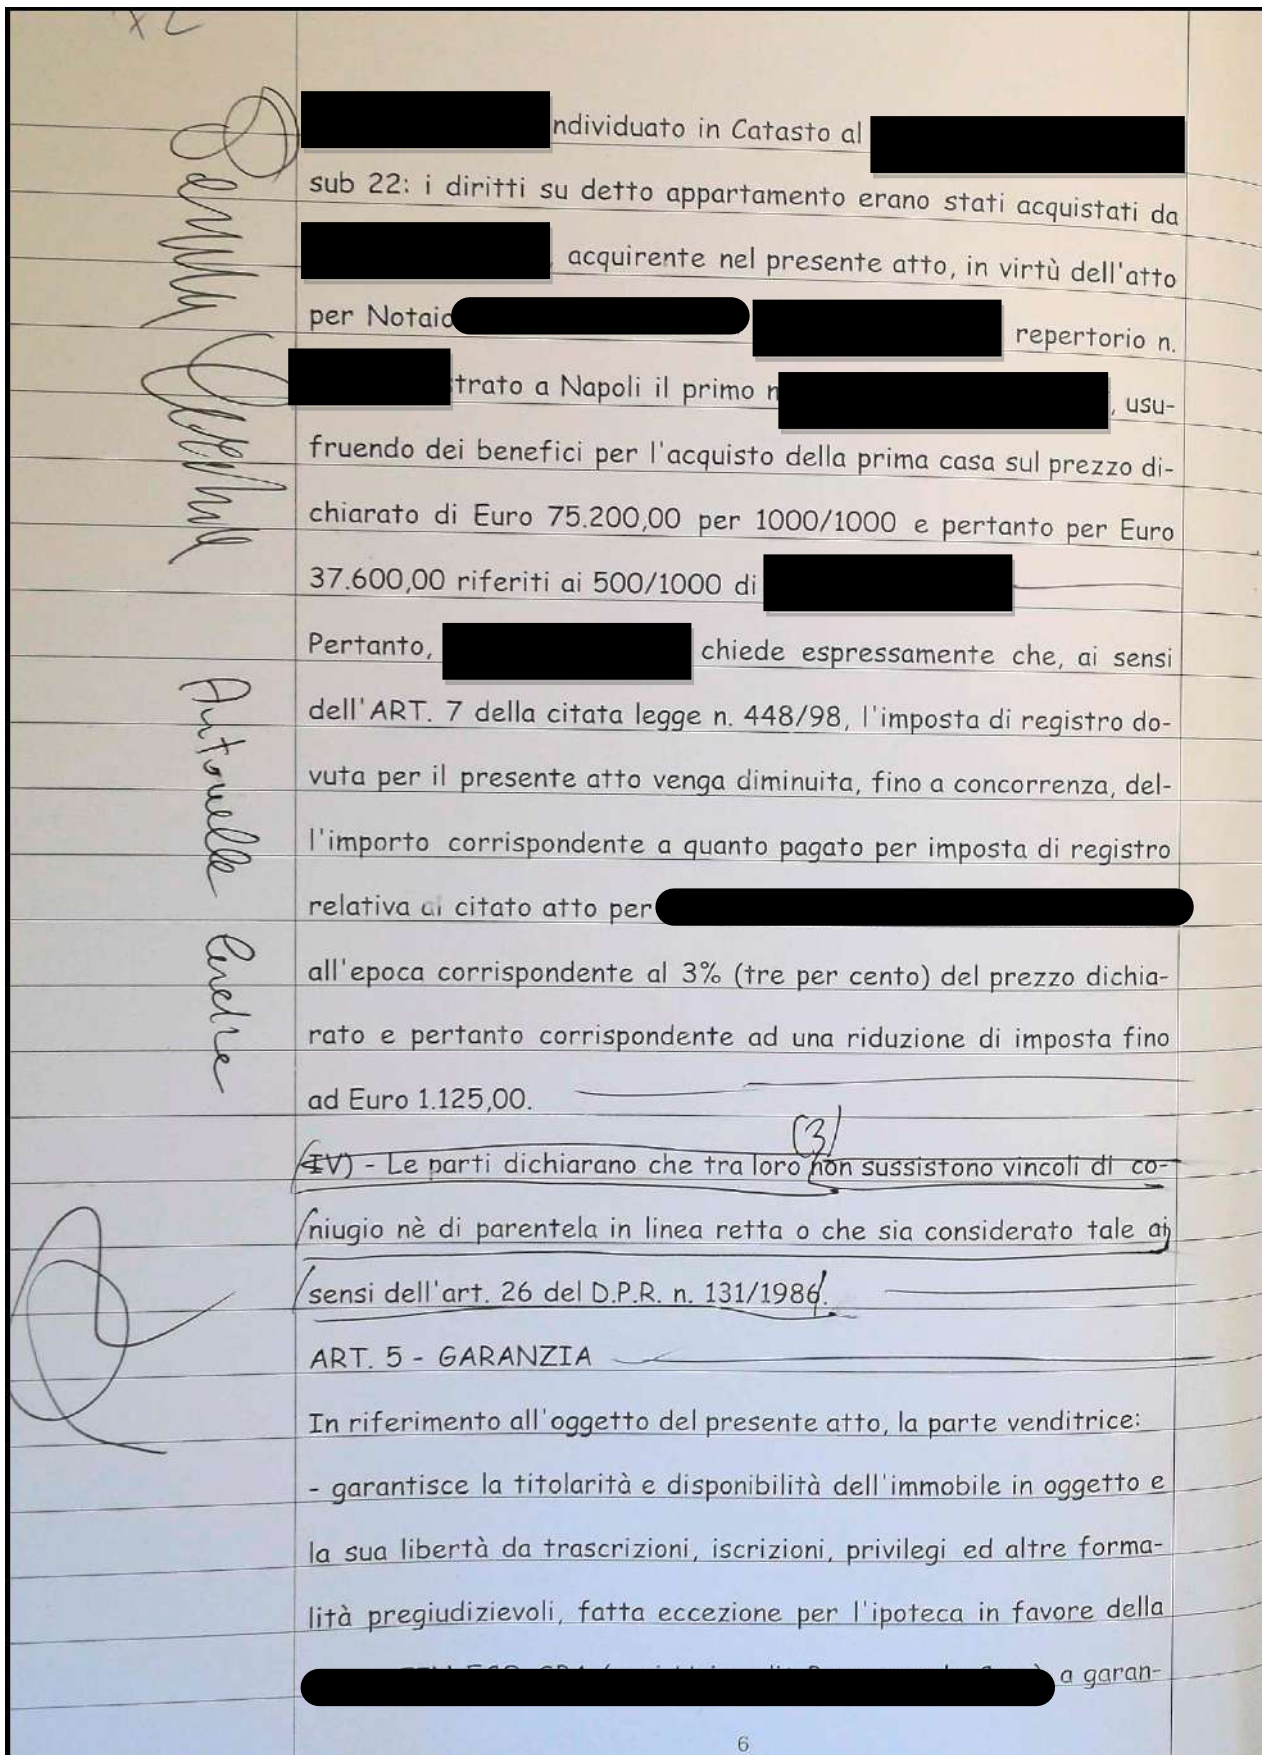 ndividuato in Catasto al
sub 22: i diritti su detto appartamento erano stati acquistati da
, acquirente nel presente atto, in virtù dell'atto
per Notaio
repertorio n.
trato a Napoli il primo
, usu-
fruendo dei benefici per l'acquisto della prima casa sul prezzo di-
chiarato di Euro 75.200,00 per 1000/1000 e pertanto per Euro
37.600,00 riferiti ai 500/1000 di
Pertanto,
chiede espressamente che, ai sensi
dell'ART. 7 della citata legge n. 448/98, l'imposta di registro do-
vuta per il presente atto venga diminuita, fino a concorrenza, del-
l'importo corrispondente a quanto pagato per imposta di registro
relativa al citato atto per
all'epoca corrispondente al 3% (tre per cento) del prezzo dichia-
rato e pertanto corrispondente ad una riduzione di imposta fino
ad Euro 1.125,00.
(3)
IV) - Le parti dichiarano che tra loro non sussistono vincoli di co-
niugio nè di parentela in linea retta o che sia considerato tale ai
sensi dell'art. 26 del D.P.R. n. 131/1986.
ART. 5 - GARANZIA
In riferimento all'oggetto del presente atto, la parte venditrice:
- garantisce la titolarità e disponibilità dell'immobile in oggetto e
la sua libertà da trascrizioni, iscrizioni, privilegi ed altre forma-
lità pregiudizievoli, fatta eccezione per l'ipoteca in favore della
a garan-
6